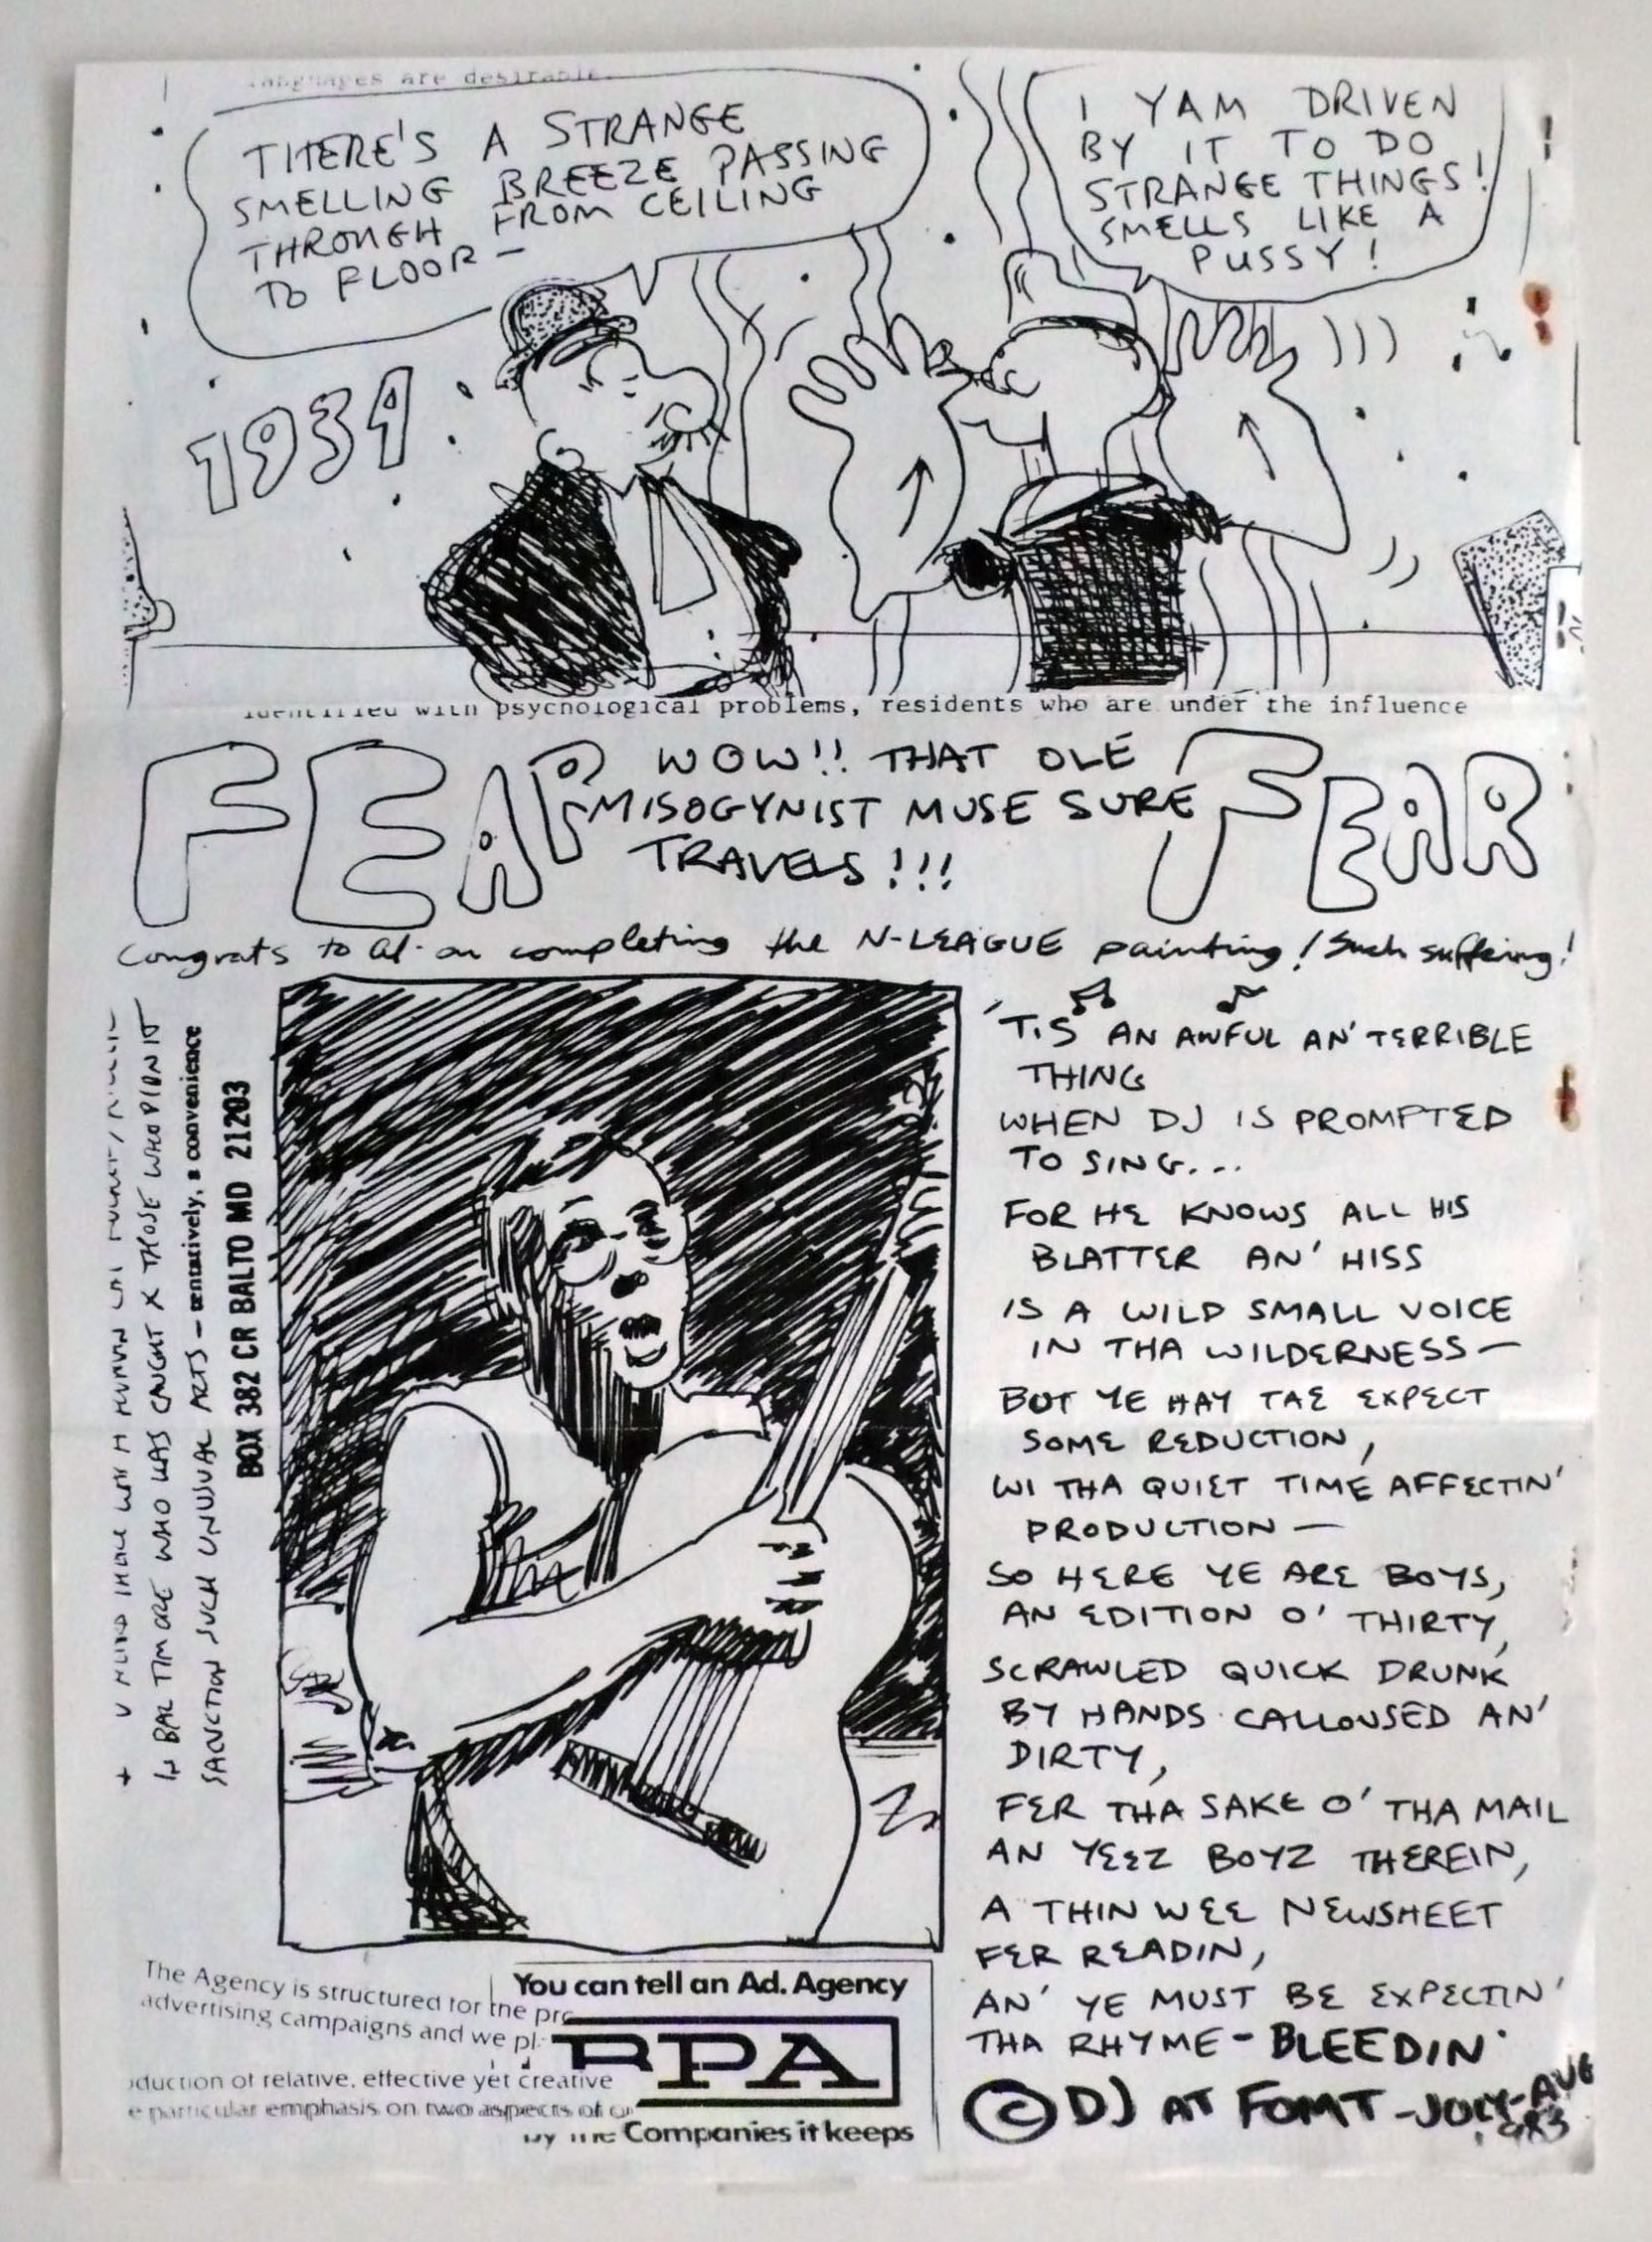 languages are desirable.
THERE'S A STRANGE
SMELLING BREEZE PASSING
THROUGH FROM CEILING
TO FLOOR —
I YAM DRIVEN
BY IT TO DO
STRANGE THINGS!
SMELLS LIKE A
PUSSY!
!
1934
identified with psychological problems, residents who are under the influence
FEAR
WOW!! THAT OLE
MISOGYNIST MUSE SURE
TRAVELS!!!
FEAR
Congrats to Al on completing the N-LEAGUE painting! Such suffering!
IN BALTIMORE WHO WAS CAUGHT X THOSE WHO
SANCTION SUCH UNUSUAL ARTS — tentatively, a convenience
BOX 382 CR BALTO MD 21203
'TIS AN AWFUL AN' TERRIBLE
THING
WHEN DJ IS PROMPTED
TO SING...
FOR HE KNOWS ALL HIS
BLATTER AN' HISS
IS A WILD SMALL VOICE
IN THA WILDERNESS —
BUT YE HAY TAE EXPECT
SOME REDUCTION,
WI THA QUIET TIME AFFECTIN'
PRODUCTION —
SO HERE YE ARE BOYS,
AN EDITION O' THIRTY,
SCRAWLED QUICK DRUNK
BY HANDS CALLOUSED AN'
DIRTY,
FER THA SAKE O' THA MAIL
AN YEEZ BOYZ THEREIN,
A THIN WEE NEWSHEET
FER READIN,
AN' YE MUST BE EXPECTIN'
THA RHYME - BLEEDIN'
© DJ AT FOMT - JULY-AUG
The Agency is structured for the pro
advertising campaigns and we pl
oduction of relative, effective yet creative
e particular emphasis on two aspects of
You can tell an Ad. Agency
RPA
by the Companies it keeps